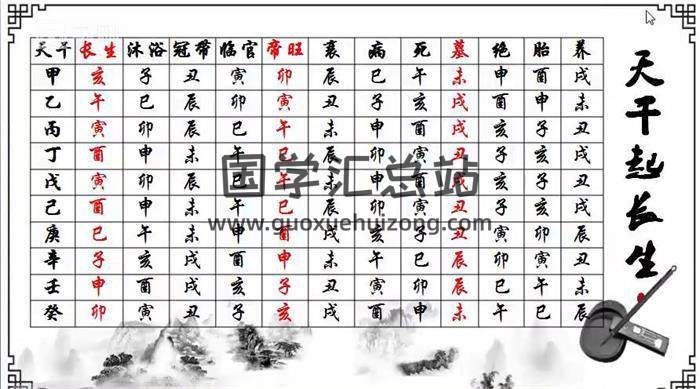 天干起长生
天干 长生 沐浴 冠帶 临官 帝旺 衰 病 死 墓 绝 胎 养
甲 亥 子 丑 寅 卯 辰 巳 午 未 申 酉 戌
乙 午 巳 辰 卯 寅 丑 子 亥 戌 酉 申 未
丙 寅 卯 辰 巳 午 未 申 酉 戌 亥 子 丑
丁 酉 申 未 午 巳 辰 卯 寅 丑 子 亥 戌
戊 寅 卯 辰 巳 午 未 申 酉 戌 亥 子 丑
己 酉 申 未 午 巳 辰 卯 寅 丑 子 亥 戌
庚 巳 午 未 申 酉 戌 亥 子 丑 寅 卯 辰
辛 子 亥 戌 酉 申 未 午 巳 辰 卯 寅 丑
壬 申 酉 戌 亥 子 丑 寅 卯 辰 巳 午 未
癸 卯 寅 丑 子 亥 戌 酉 申 未 午 巳 辰
国学汇总站
www.guoxuehuizong.com